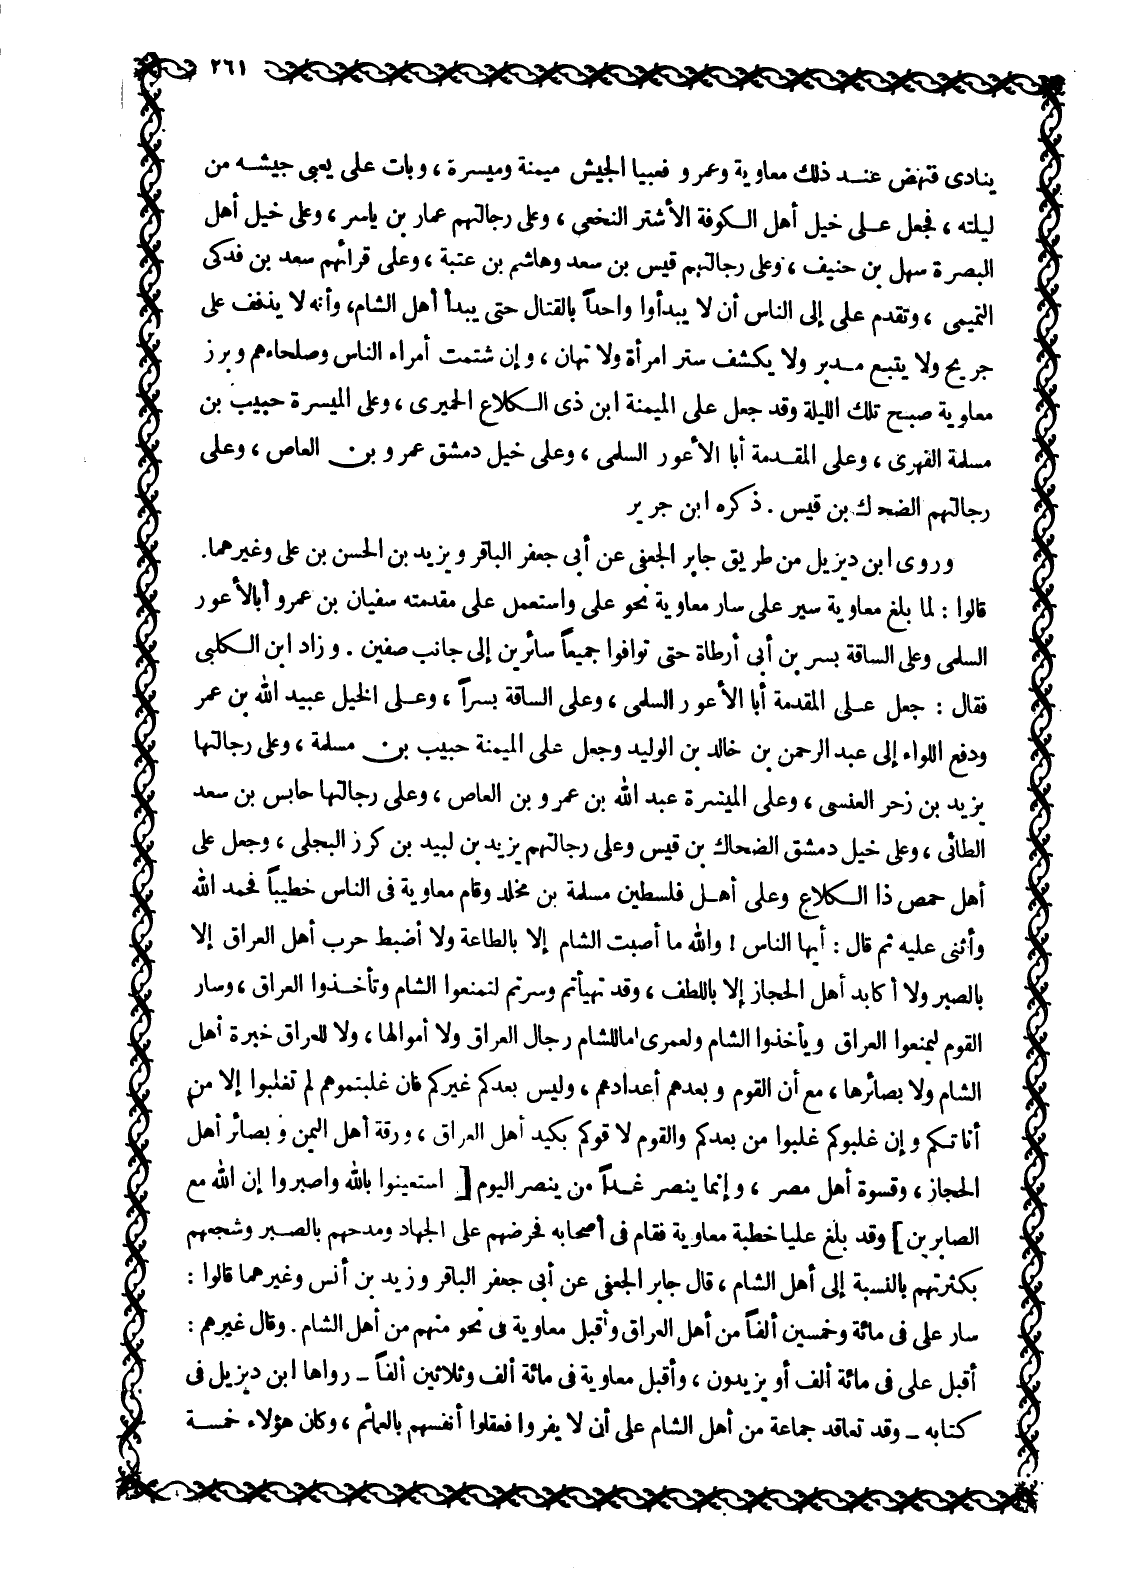 ٢٦١
ينادى فنهض عند ذلك معاوية وعمرو فعبيا الجيش ميمنة وميسرة ، وبات على يعبى جيشه من
ليلته ، فجعل على خيل أهل الكوفة الأشتر النخعى ، وعلى رجالتهم عمار بن ياسر ، وعلى خيل أهل
البصرة سهل بن حنيف ، وعلى رجالتهم قيس بن سعد وهاشم بن عتبة ، وعلى قرائهم سعد بن فدكى
التميمى ، وتقدم على إلى الناس أن لا يبدأوا واحداً بالقتال حتى يبدأ أهل الشام، وأنه لا يذفف على
جريح ولا يتبع مدبر ولا يكشف ستر امرأة ولا تهان ، وإن شتمت أمراء الناس وصلحاءهم وبرز
معاوية صبح تلك الليلة وقد جعل على الميمنة ابن ذى الكلاع الحميرى ، وعلى الميسرة حبيب بن
مسلمة الفهرى ، وعلى المقدمة أبا الأعور السلمى ، وعلى خيل دمشق عمرو بن العاص ، وعلى
رجالتهم الضحاك بن قيس . ذكره ابن جرير
وروى ابن ديزيل من طريق جابر الجعفى عن أبى جعفر الباقر ويزيد بن الحسن بن على وغيرهما.
قالوا : لما بلغ معاوية سير على سار معاوية نحو على واستعمل على مقدمته سفيان بن عمرو أبا الأعور
السلمى وعلى الساقة بسر بن أبى أرطاة حتى توافوا جميعاً سائرين إلى جانب صفين . وزاد ابن الكلبى
فقال : جعل على المقدمة أبا الأعور السلمى ، وعلى الساقة بسراً ، وعلى الخيل عبيد الله بن عمر
ودفع اللواء إلى عبد الرحمن بن خالد بن الوليد وجعل على الميمنة حبيب بن مسلمة ، وعلى رجالتها
يزيد بن زحر العنسى ، وعلى الميسرة عبد الله بن عمرو بن العاص ، وعلى رجالتها حابس بن سعد
الطائى ، وعلى خيل دمشق الضحاك بن قيس وعلى رجالتهم يزيد بن لبيد بن كرز البجلى ، وجعل على
أهل حمص ذا الكلاع وعلى أهل فلسطين مسلمة بن مخلد وقام معاوية فى الناس خطيباً فحمد الله
وأثنى عليه ثم قال : أيها الناس ! والله ما أصبت الشام إلا بالطاعة ولا أضبط حرب أهل العراق إلا
بالصبر ولا أكابد أهل الحجاز إلا باللطف ، وقد تهيأتم وسرتم لتمنعوا الشام وتأخذوا العراق ، وسار
القوم ليمنعوا العراق ويأخذوا الشام ولعمرى ما للشام رجال العراق ولا أموالها ، ولا للعراق خبرة أهل
الشام ولا بصائرها ، مع أن القوم وبعدهم أعدادهم ، وليس بعدكم غيركم فان غلبتموهم لم تغلبوا إلا من
أناتكم وإن غلبوكم غلبوا من بعدكم والقوم لاقوكم بكيد أهل العراق ، ورقة أهل اليمن وبصائر أهل
الحجاز ، وقسوة أهل مصر ، وإنما ينصر غداً من ينصر اليوم [ استعينوا بالله واصبروا إن الله مع
الصابرين ] وقد بلغ عليا خطبة معاوية فقام فى أصحابه فحرضهم على الجهاد ومدحهم بالصبر وشجعهم
بكثرتهم بالنسبة إلى أهل الشام ، قال جابر الجعفى عن أبى جعفر الباقر وزيد بن أنس وغيرهما قالوا :
سار على فى مائة وخمسين ألفاً من أهل العراق وأقبل معاوية فى نحو منهم من أهل الشام . وقال غيرهم :
أقبل على فى مائة ألف أو يزيدون ، وأقبل معاوية فى مائة ألف وثلاثين ألفاً ــ رواها ابن ديزيل فى
كتابه ــ وقد تعاقد جماعة من أهل الشام على أن لا يفروا فعقلوا أنفسهم بالعمائم ، وكان هؤلاء خمسة